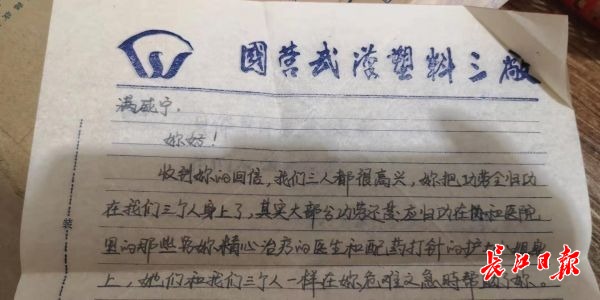 國营武漢塑料三廠
满咸宁，
妳好！
收到妳的回信，我们三人都很高兴，妳把功劳全归功
在我们三个人身上了，其实大部分功劳还是应归功在协和医院
里的那些为妳精心治疗的医生和配药打针的护士小姐身
上，她们和我们三个人一样在妳危难之急時帮助了妳。
装
长江日报